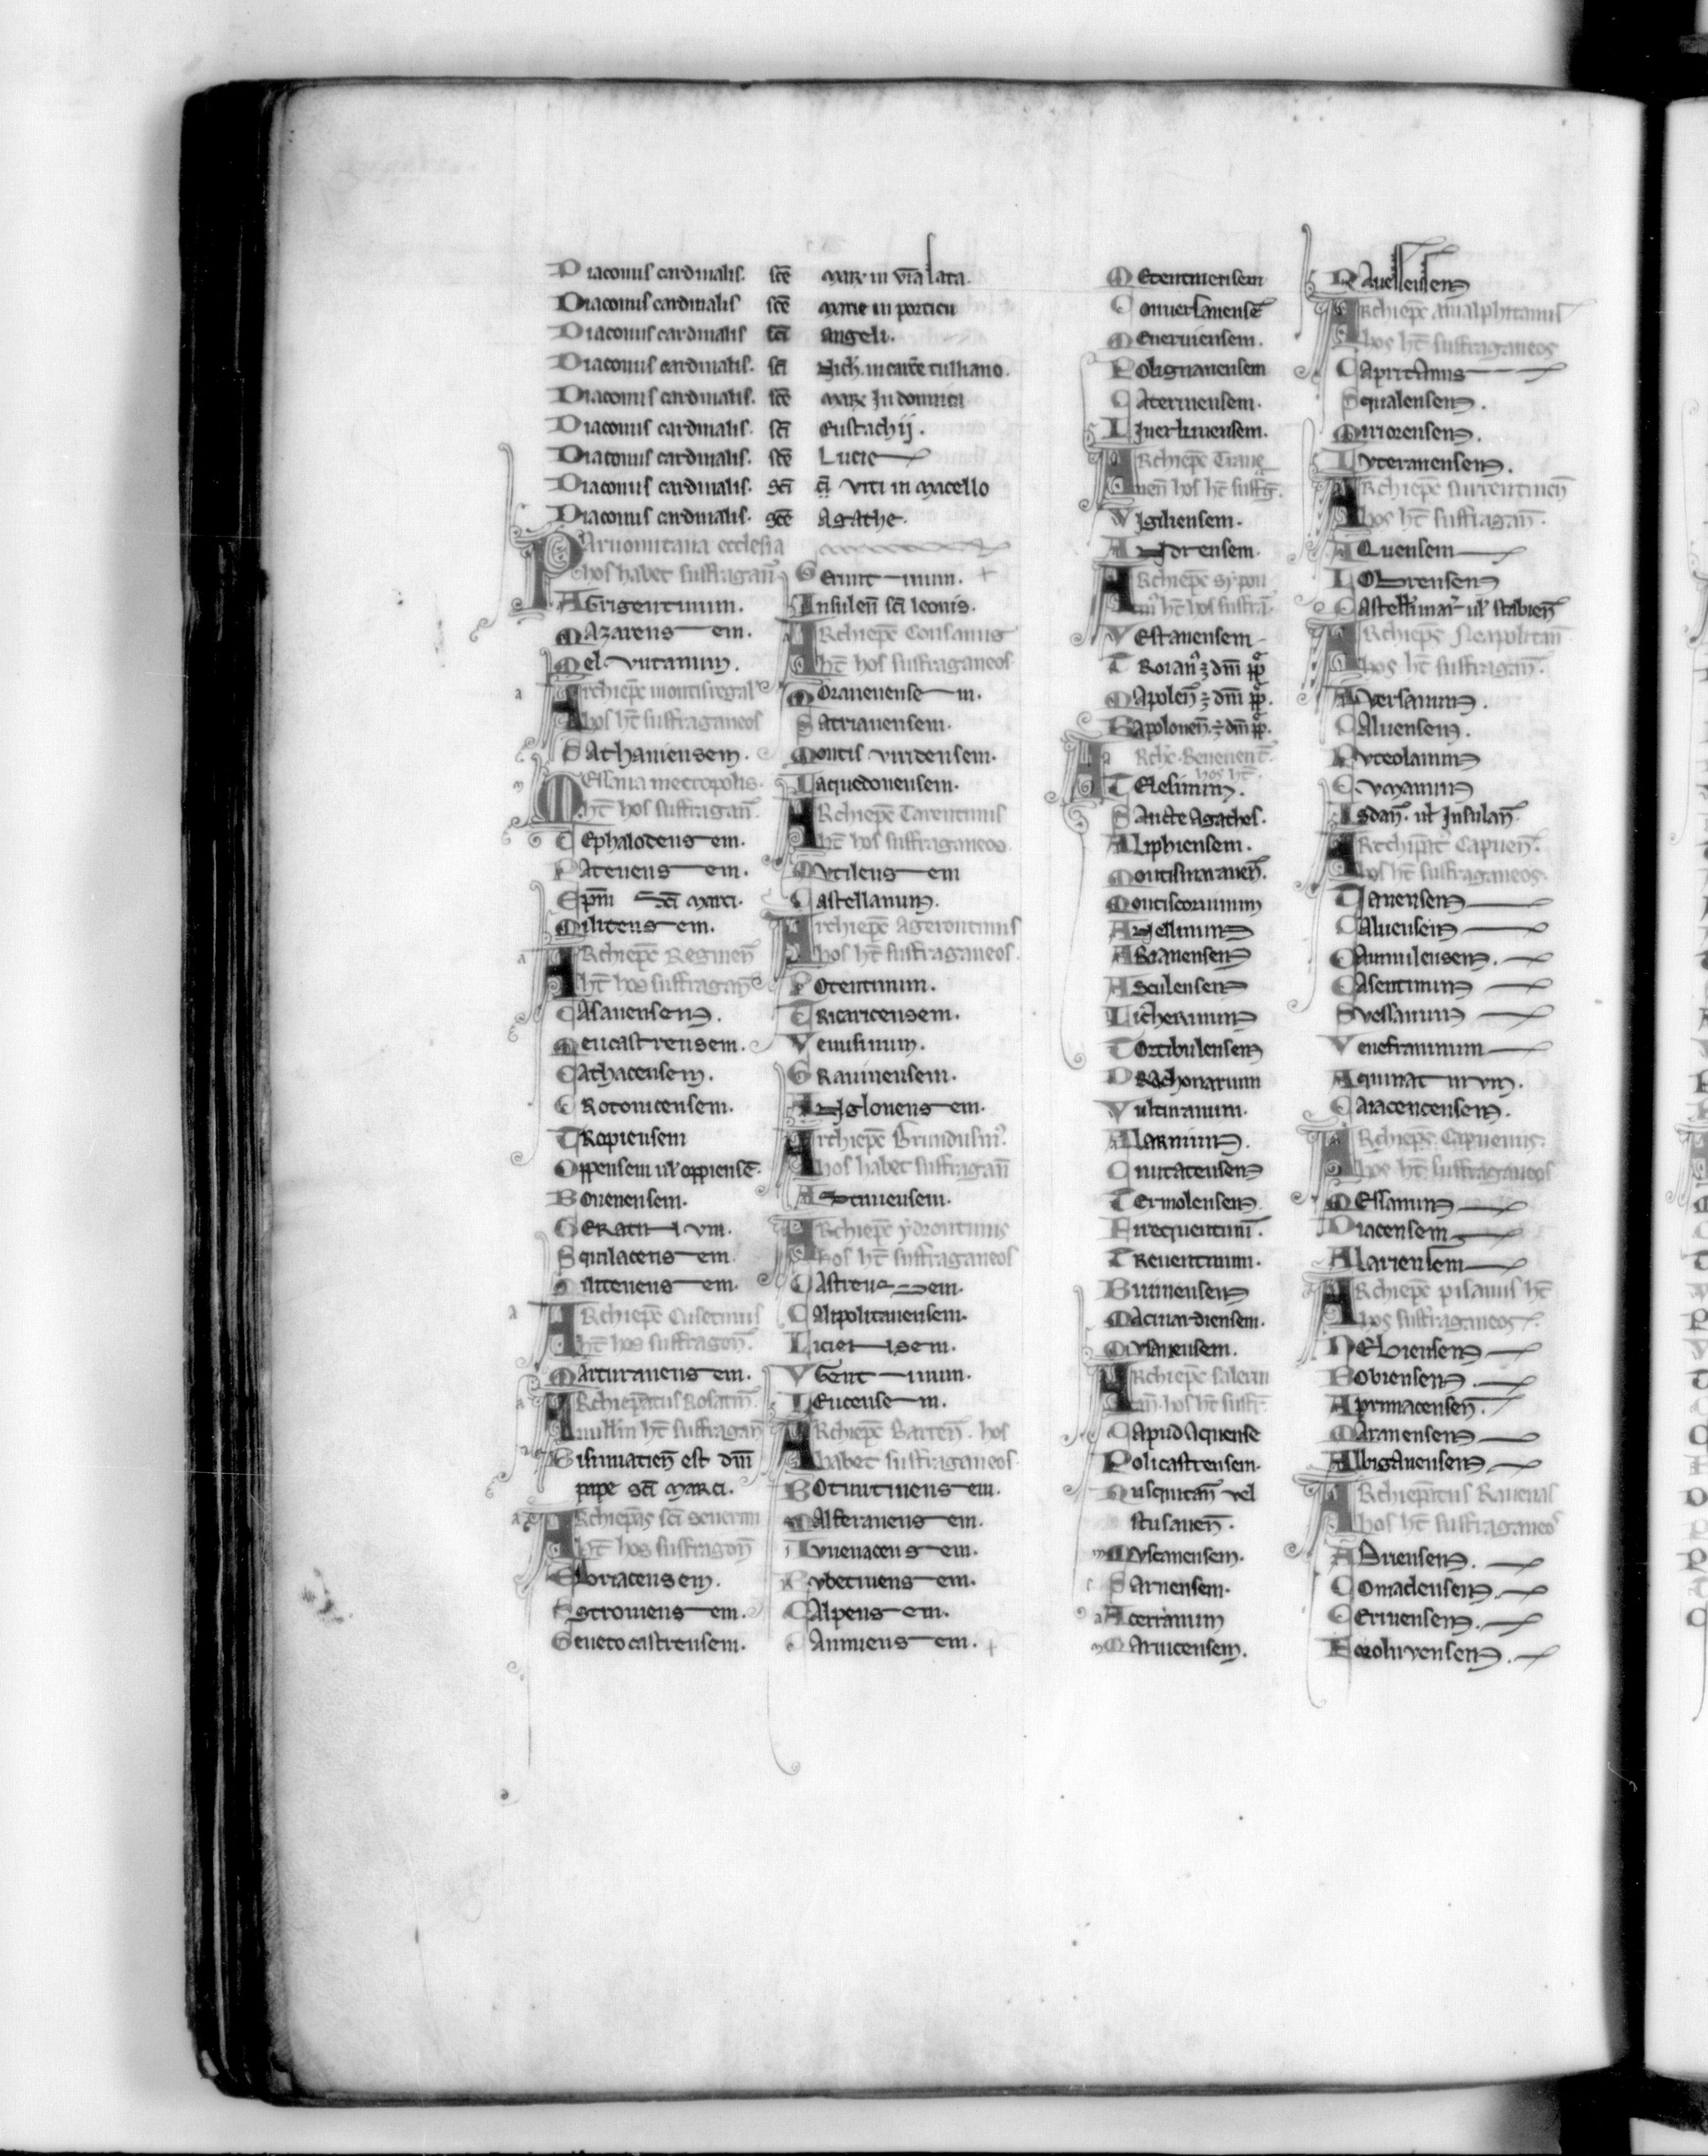 Diaconus cardinalis. sc̄e marie in via lata.
Diaconus cardinalis sc̄e marie in porticu
Diaconus cardinalis sc̄i angeli.
Diaconus cardinalis. sc̄i Nich. in carc̄e tulliano.
Diaconus cardinalis. sc̄e marie In domnica
Diaconus cardinalis. sc̄i Eustachij.
Diaconus cardinalis. sc̄e Lucie
Diaconus cardinalis. sc̄i viti in macello
Diaconus cardinalis. sc̄e Agathe.
Parnomitana ecclesia
hos habet suffragan̄
AGrigentinum.
MAzarensem.
Mel. vitanum.
Archiep̄c montisregal
hos ht̄ suffraganeos
CAthaniensem.
MEssana metropolis.
ht̄ hos suffragan̄.
CEphalodensem.
PAtenensem.
Ep̄m sc̄i marci.
Militensem.
ARchiep̄c Reginen̄
ht̄ hos suffragan̄
CAsanensem.
Neucastrensem.
CAthacensem.
CRotonicensem.
TRopiensem
Oppensem ul' oppiensē.
BOuenensem.
GERatinum.
Squilacensem.
ARchiep̄c Cusetinus
ht̄ hos suffragan̄.
MArturanensem.
ARchiep̄atus Rosatin̄.
nullū ht̄ suffragan̄
Bisimatien̄ est dn̄i
pape sc̄i marci.
ARchiep̄c sc̄i seuerini
ht̄ hos suffragan̄
EBriacensem.
Stroniensem.
Geneocastrensem.
Gerunt inum.
Insulen̄ sc̄i leonis.
ARchiep̄c Consanus
ht̄ hos suffraganeos.
MOranenensem.
SAtrianensem.
Montis viridensem.
Laquedonensem.
ARchiep̄c Tarentinus
ht̄ hos suffraganeos.
MVtilensem
CAstellanum.
Archiep̄c Agerontinus
hos ht̄ suffraganeos.
POtentinum.
TRicaricensem.
VEnusinum.
GRauinensem.
ANglonensem.
Archiep̄c Brundusin̄.
hos habet suffragan̄
AStunensem.
ARchiep̄c ydrontinus
hos ht̄ suffraganeos
CAstrensem.
CAlipolitanensem.
Liciensem.
VGentinum.
LEucensem.
ARchiep̄c Baren̄. hos
habet suffraganeos.
BOtuntinensem.
MAlferanensem.
Iuuenacensem.
RVbetinensem.
CAlpensem.
CAnniensem.
COnuersanensē
MEneruiensem.
POlignanensem
CAterinensem.
ARchiep̄c Trane
nen̄ hos ht̄ suffg̅.
VIgiliensem.
ANdrensem.
ARchiep̄c sypon
tin̄ ht̄ hos suffra.
VEstanensem
TRoian̄ ꝫ dn̄i pp̄
MApolen̄ ꝫ dn̄i pp̄.
Archiep̄c. Beneuent̄.
hos ht̄.
TElesinum.
SAncte Agathes.
ALiphiensem.
Montismaranen̄.
Montiscoruinum
AVellinum
ARianensem
AScilensem
LUcherinum
TOrtibulensem
DRachonarium
VUlturanum.
ALarinum.
CIuitatensem
TErmolensem
FIrequentinū.
TReuentinum.
BIuinensem
ARchiep̄c salerni
tan̄. hos ht̄ suffr̄.
CApud Aquense
POlicastrensem.
NUsquitan̄ vel
nusanen̄.
SArnensem.
Acerranum
MAruicensem.
RAuellensem
ARchiep̄c amalphitanus
hos ht̄ suffraganeos
CApritanus
Squalensem.
Minorensem.
LYteranensem.
ARchiep̄c surrentinen̄
hos ht̄ suffragan̄.
AQuensem
LObrensem
CAstell'imar̄ ul' stabien̄
ARchiep̄c Neapolitan̄
hos ht̄ suffragan̄.
AVersanum.
CAluensem.
PVteolanum
CVmanum
ISclan̄. ul' Insulan̄.
ARchiep̄at Capuen̄.
hos ht̄ suffraganeos.
TEanensem
CAluensem
CAsentinum
SVessanum
VEnefranum
AQuinat inum.
ARchiep̄c Capuenus.
hos ht̄ suffraganeos
MEssanum
DIacensem
ALariensem
ARchiep̄c pisanus ht̄
hos suffraganeos.
NEbiensem
BObiensem
APrunacensem.
MAranensem
ALbiganensem
ARchiep̄atus Rauenas
hos ht̄ suffraganeos
ADriensem.
COmaclensem.
CEruensem.
FOroliuensem.